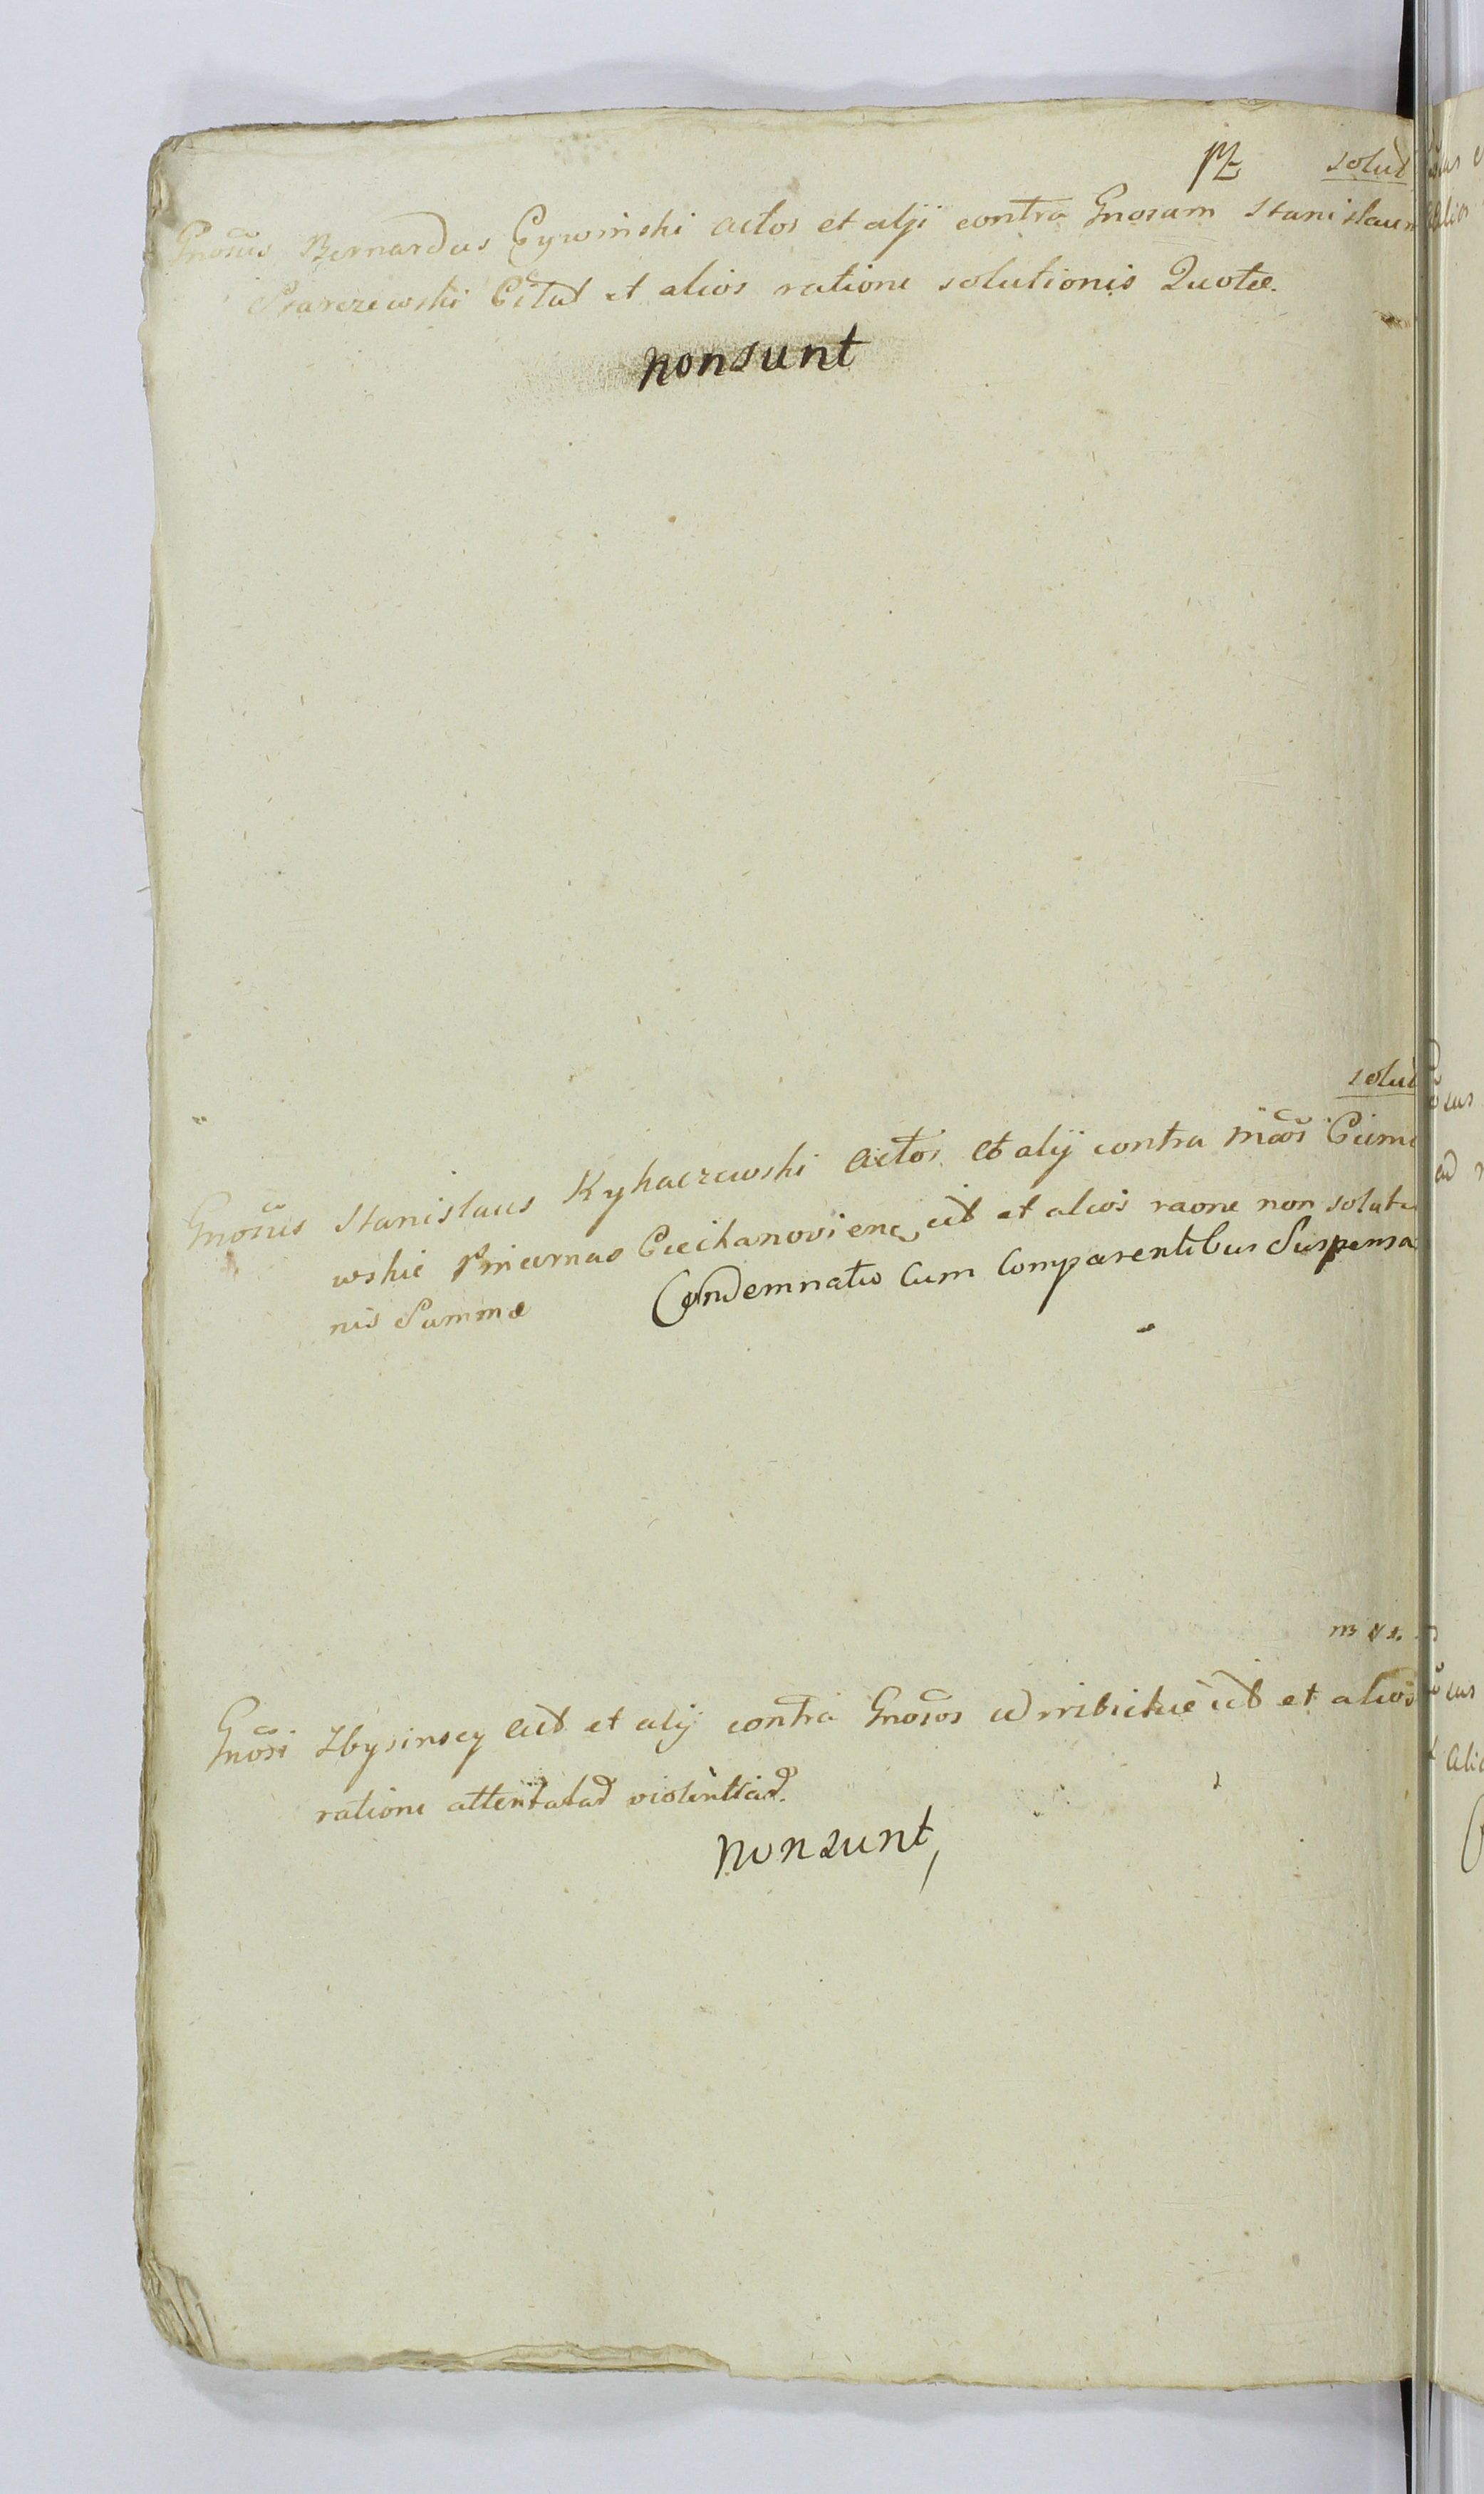 solut
Gnosus Bernardus Cywinski actor et alÿ contra Gnosum Stanislaum
Psarczewski Citat et alios ratione solutionis Quotæ.
non sunt
solut
Gnosus Stanislaus Rykaczewski actor et alij contra Mcos
wskie Pincernas Ciechanoviens cit et alios raone non solutio
nis Summæ
Condemnatio Cum Comparentibus Suspensa
Gnosi Zbysinscy act et alij contra Gnosos cit et alios
ratione attentatar violentiar.
non sunt